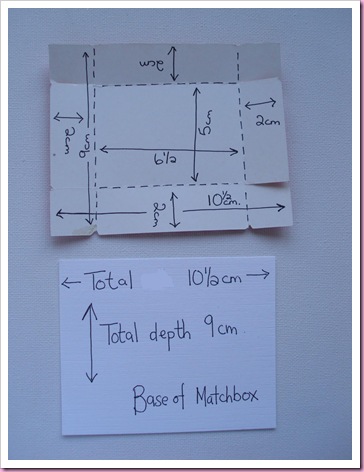 2cm
2cm
9cm
5cm
2cm
6½
10½cm.
2cm
Total 10½cm
Total depth 9cm.
Base of Matchbox